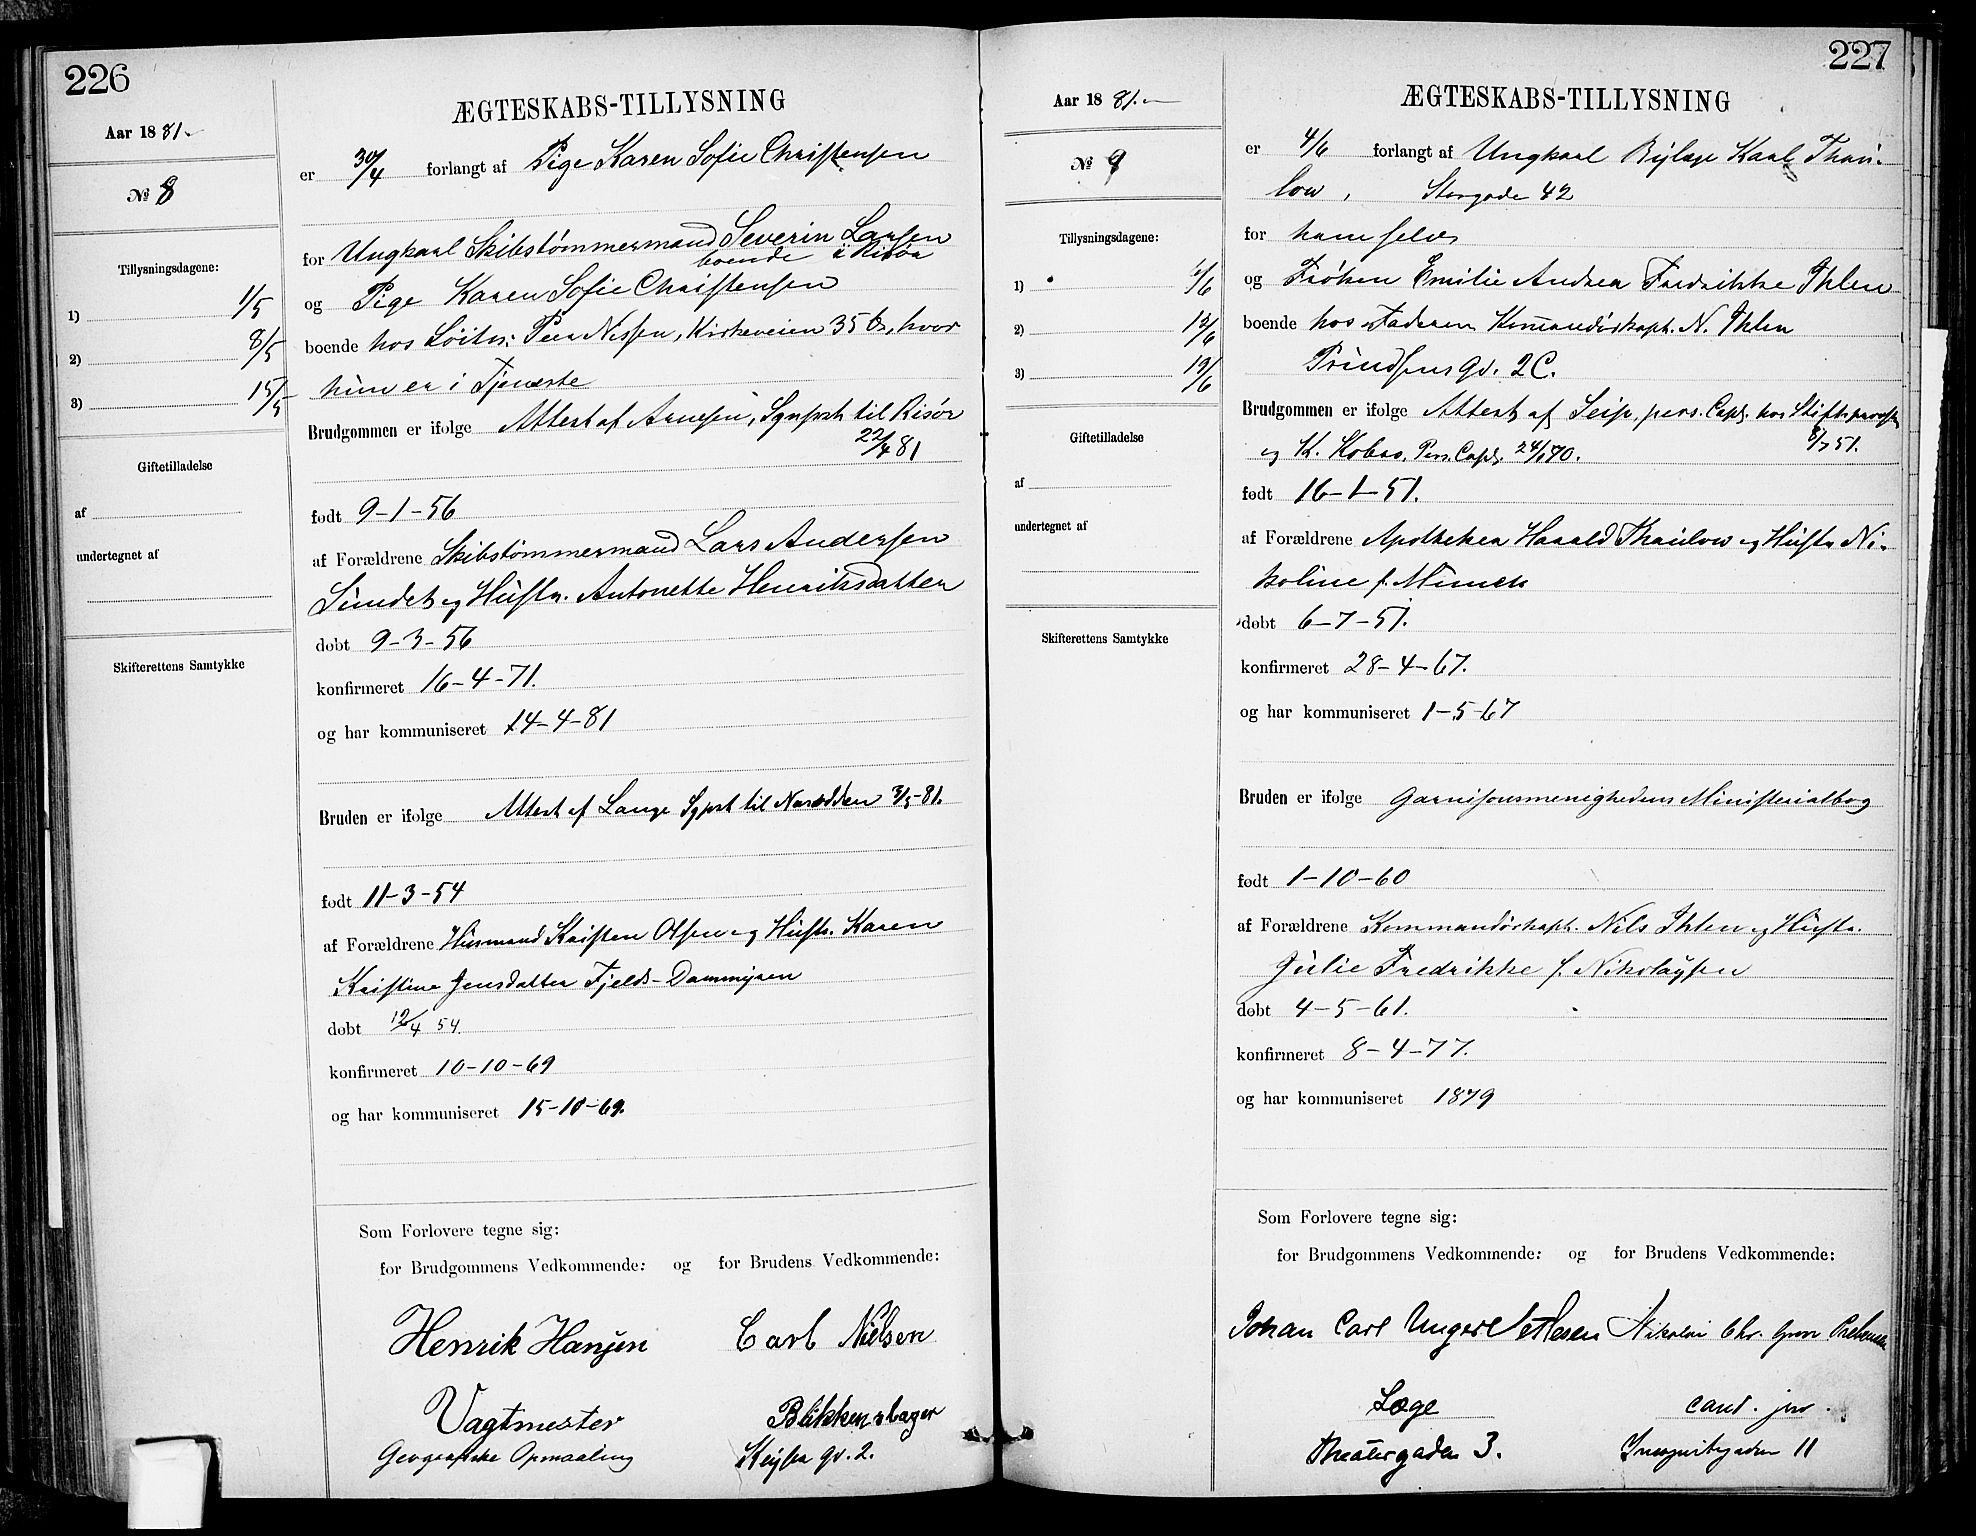 226
Aar 1881.
№ 8
Tillysningsdagene:
1) 1/5
2) 8/5
3) 15/5
Giftetilladelse
af
undertegnet af
Skifterettens Samtykke
ÆGTESKABS-TILLYSNING
er 30/4 forlangt af Pige Karen Sofie Christensen
for Ungkarl Skibstømmermand Severin Larsen
boende i Risør
og Pige Karen Sofie Christensen
boende hos Løitn. Nissen, Kirkeveien 35 b, hvor
hun er i Tjeneste
Brudgommen er ifølge Attest af Arnesen, Sgnprst til Risør
22/4 81
født 9-1-56
af Forældrene Skibstømmermand Lars Andersen
Sundet og Hustr. Antonette Henriksdatter
døbt 9-3-56
konfirmeret 16-4-71.
og har kommuniseret 14-4-81
Bruden er ifølge Attest af Lange Sgprst til 3/5-81.
født 11-3-54
af Forældrene Husmand Kristen Olsen og Hustr. Karen
Kristine Jensdatter Fjelds-Dammyren
døbt 12/4 54.
konfirmeret 10-10-69
og har kommuniseret 15-10-69.
Som Forlovere tegne sig:
for Brudgommens Vedkommende: og for Brudens Vedkommende:
Henrik Hansen Carl Nielsen
Vagtmester Blikkenslager
Geografiske Opmaaling Keysers gd. 2.
227
Aar 1881.
№ 9
Tillysningsdagene:
1) 6/6
2) 12/6
3) 19/6
Giftetilladelse
af
undertegnet af
Skifterettens Samtykke
ÆGTESKABS-TILLYSNING
er 4/6 forlangt af Ungkarl Bylæge Karl Thau-
low, Storgade 42
for ham selv
og Frøken Emilie Andrea Fredrikke Ihlen
boende hos Faderen Komandørkapt. N. Ihlen
Prindsens gd. 2C.
Brudgommen er ifølge Attest af Seip, pers. Capl. hos Stiftsprovsten
8/7 51.
og K. Pers. Capl. 24/1 70.
født 16-1-51.
af Forældrene Apotheker Harald Thaulow og Hustr Ni-
koline f. Munch
døbt 6-7-51.
konfirmeret 28-4-67.
og har kommuniseret 1-5-67
Bruden er ifølge Garnisonsmenighedens Ministerialbog
født 1-10-60
af Forældrene Kommandørkapt. Nils Ihlen og Hustr.
Julie Fredrikke f. Nikolaysen
døbt 4-5-61.
konfirmeret 8-4-77.
og har kommuniseret 1879
Som Forlovere tegne sig:
for Brudgommens Vedkommende: og for Brudens Vedkommende:
Johan Carl Unger Vetlesen Nikolai Chr. Grove Prebensen
Læge cand. jur.
Theatergaden 3. Incognitogaden 11